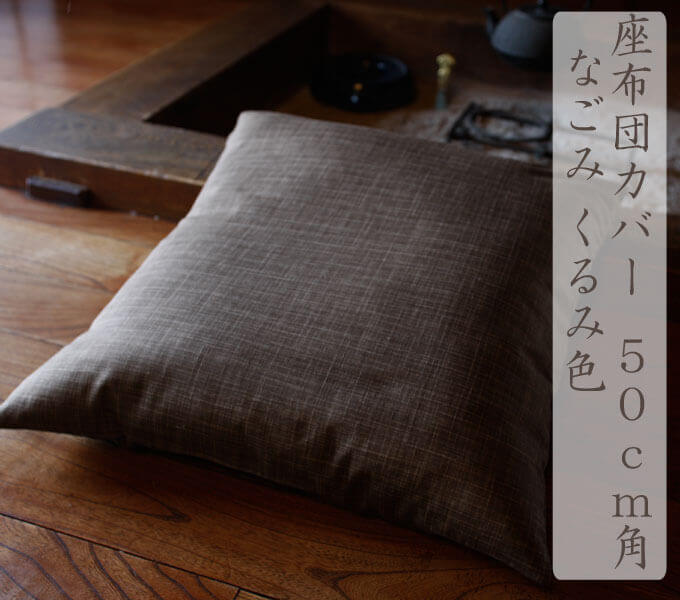 座布団カバー 50cm角
なごみ くるみ色